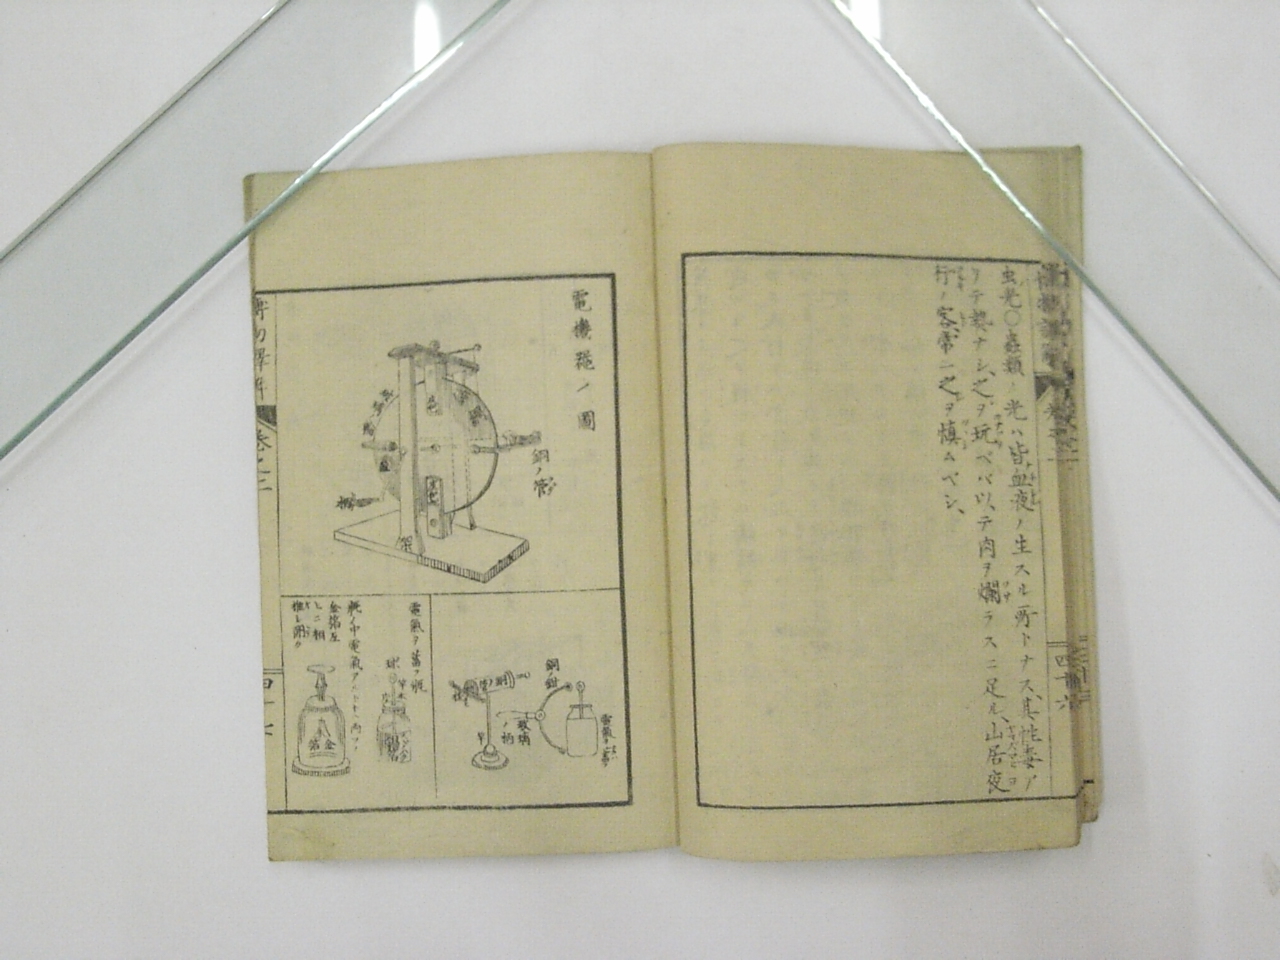 虫光〇蟲類ノ光ハ皆血液ノ生スル所トナス、其性毒ノ
リテ熱ナシ、之ヲ玩ベバ以テ肉ヲ爛ラスニ足ル、山居夜
行ノ客、常ニ之ヲ慎ムベシ、
四十六
電機器ノ圖
銅ノ管
架
銅ノ鉗
玻璃ノ柄
電氣ヲ蓄フ瓶
球
瓶ノ中電氣アルトキハ内ノ
金箔互
ヒニ相
推シ開ク
金箔
卷之三
四十七